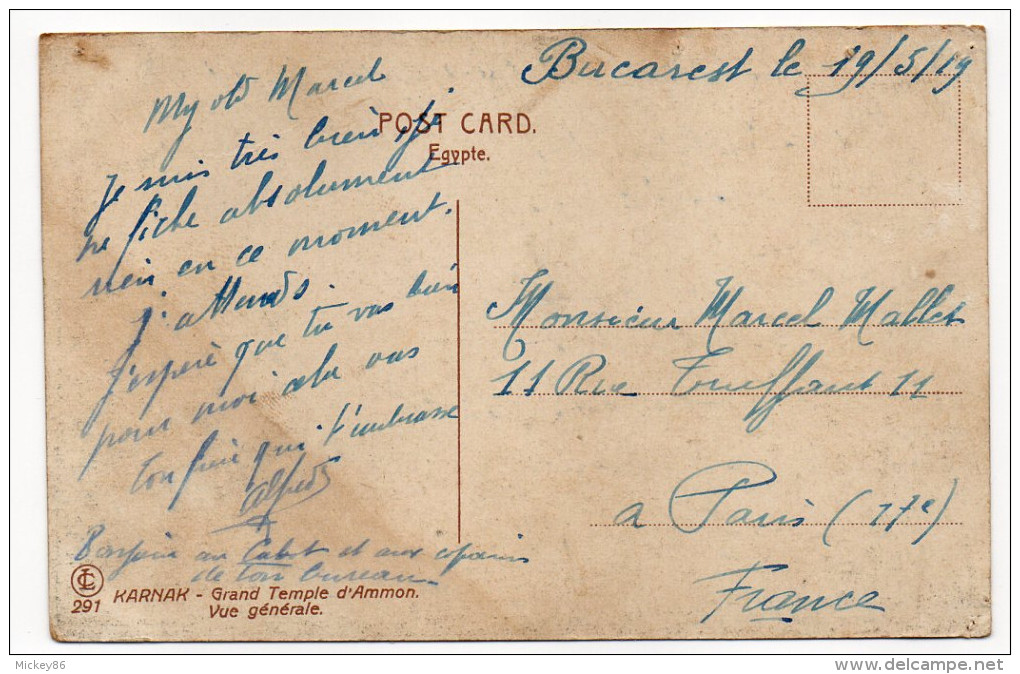 Bucarest le 19/5/19
My old Marcel
POST CARD.
Egypte.
Je suis très bien, je
ne fiche absolument
rien en ce moment.
J'attends.
J'espère que tu vas bien
pour moi cela va
ton frère qui t'embrasse
Alfred
Bonjour au Cabot et aux copains
de ton bureau
Monsieur Marcel Mallet
11 Rue Touffaut 11
a Paris (17e)
France
LC
291
KARNAK - Grand Temple d'Ammon.
Vue générale.
Mickey86
delcampe.net